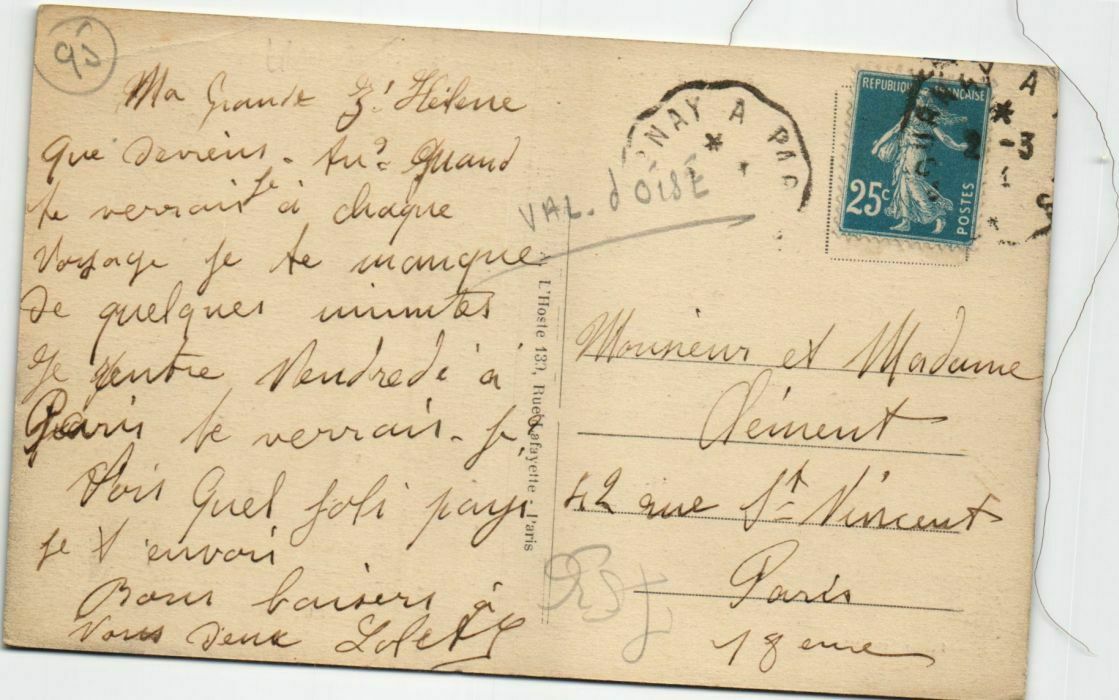 95
Ma Grande Hélène
que deviens-tu? Quand
te verrais je à chaque
voyage je te manque
de quelques minutes
Je rentre Vendredi à
Paris te verrais-je
Vois quel joli pays
je t'envoi
Bons baisers à
Vous deux
VAL. d'OISE
L'Hoste 139, Rue Lafayette Paris
RNAY A PAR
REPUBLIQUE FRANCAISE
25c
POSTES
Y A
2-3
Monsieur et Madame
Clément
42 rue St Vincent
Paris
18eme